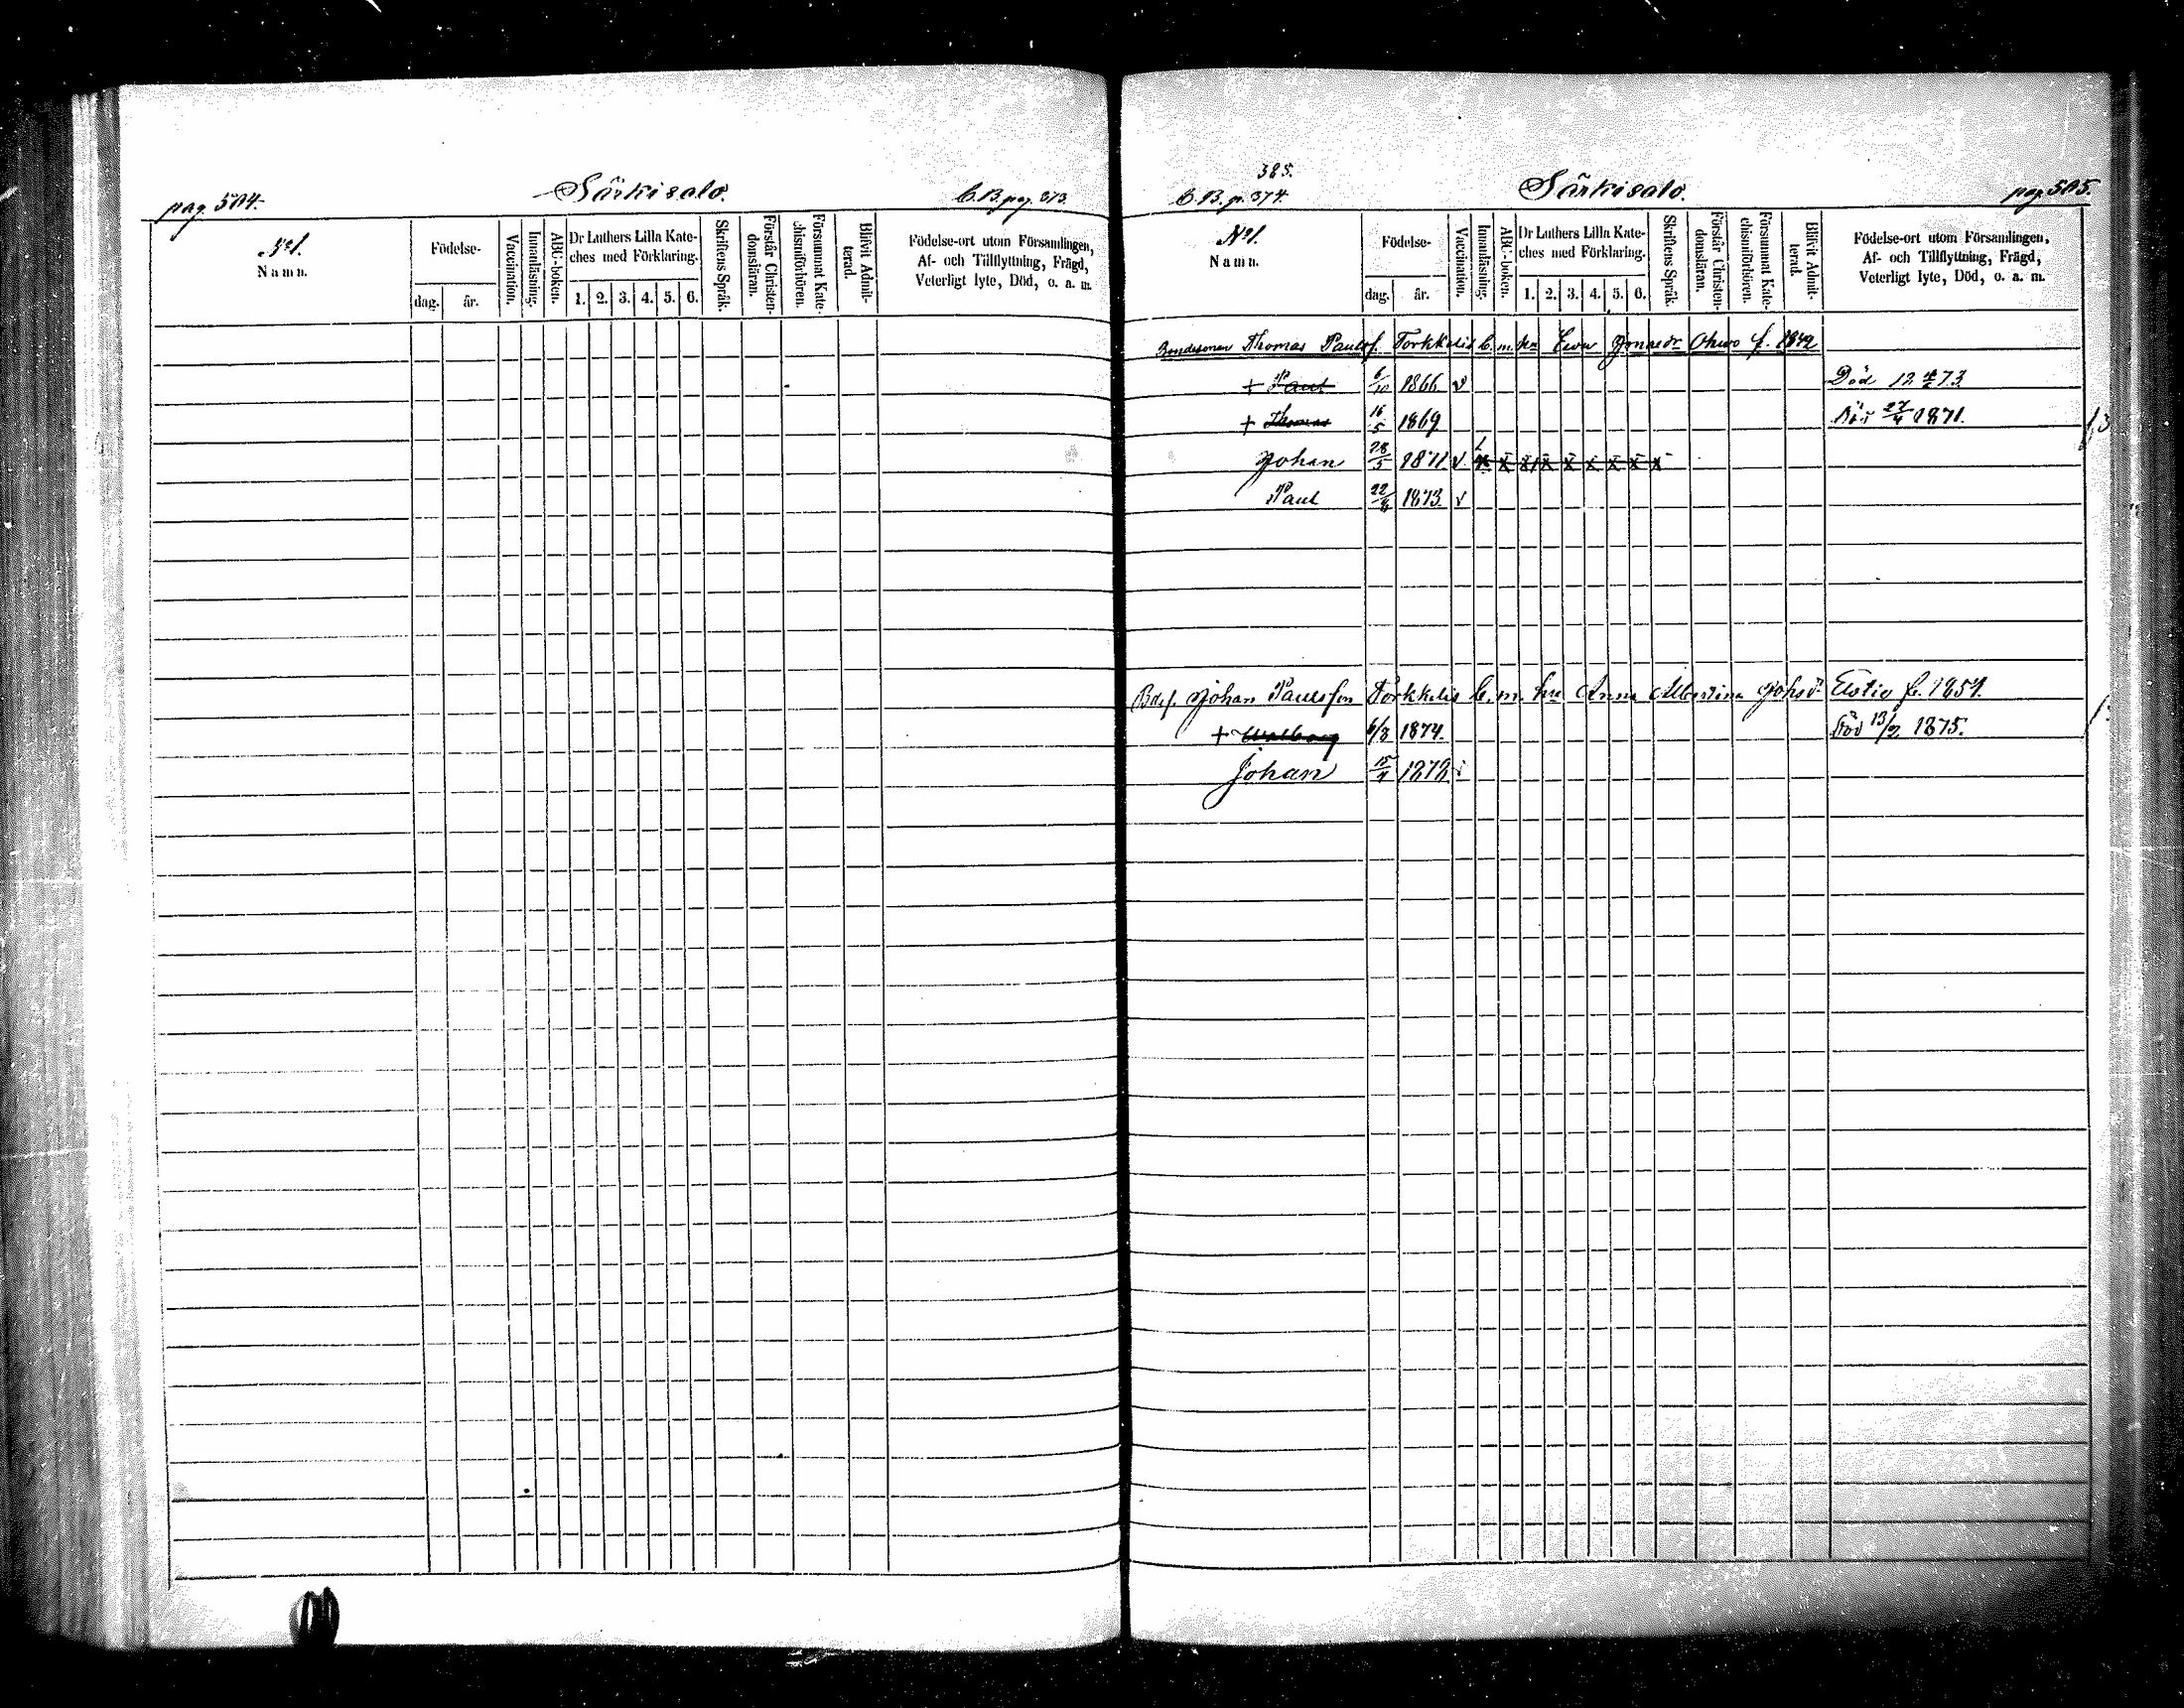 pag. 504. Särkisalo. C.B. pag. 373.
No 1.
Namn. Födelse- dag. år. Vaccination. Innanläsning. ABC-boken. Dr Luthers Lilla Kate-ches med Förklaring. 1. 2. 3. 4. 5. 6. Skriftens Språk. Förstår Christen-domsläran. Försummat Kate-chismiförhören. Blifvit Admit-terad. Födelse-ort utom Församlingen, Af- och Tillflyttning, Frägd, Veterligt lyte, Död, o. a. m.
385.
C.B. p. 374. Särkisalo. pag. 505.
No 1.
Namn. Födelse- dag. år. Vaccination. Innanläsning. ABC-boken. Dr Luthers Lilla Kate-ches med Förklaring. 1. 2. 3. 4. 5. 6. Skriftens Språk. Förstår Christen-domsläran. Försummat Kate-chismiförhören. Blifvit Admit-terad. Födelse-ort utom Församlingen, Af- och Tillflyttning, Frägd, Veterligt lyte, Död, o. a. m.
Bondesonen Thomas Paulsf. Torkkelis b. m. hu Ewa f. 1842
+ Paul 6/10 1866 v Död 12 73
+ Thomas 16/5 1869 Död 27/4 1871.
Johan 28/5 1871 v x x x x x x x x x
Paul 1873 v
Bdes. Johan Paulsson Torkkelis b. m. hu Anna Albertina Johsd. f. 1854.
+ Walborg 6/3 1874. Död 1875.
Johan 15/4 1878